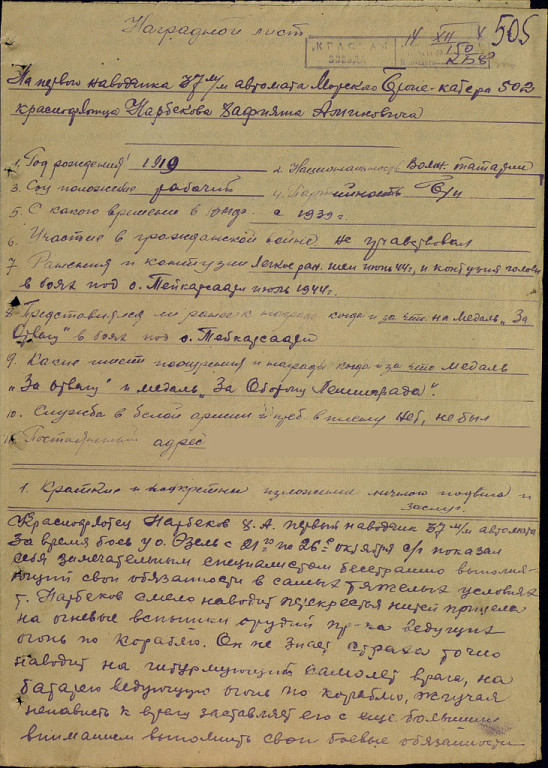 Наградной лист
505
КРАСНАЯ
ЗВЕЗДА
14 XII
150
На первого наводчика 37 м/м автомата Морского Броне-катера 502
краснофлотца Нарбекова Аминовича
1. Год рождения 1919 2. Национальность Волж. татарин
3. Соц положение рабочий 4. Партийность б/п
5. С какого времени в с 1939 г.
6. Участие в гражданской войне не учавствовал
7. Ранения и контузии легкое ран. шеи июнь 44 г., и контузия головы
в боях под о. Тейкарсаари июль 1944 г.
8. Представлялся ли ранее к награде когда и за что на медаль „За
Отвагу" в боях под о.
9. Какие имеет поощрения и награды когда и за что медаль
„За отвагу" и медаль „За Оборону Ленинграда".
10. Служба в белой армии и преб. в плену нет, не был
11. Постоянный адрес
1. Краткие и конкретны изложения личного подвига и
заслуг.
Краснофлотец Нарбеков Х. А. первый наводчик 37 м/м автомата
За время боев у о. Эзель с 21го по 26е октября с/г показал
себя замечательным специалистом бесстрашно выполня-
ющий свои обязанности в самых тяжелых условиях
т. Нарбеков смело наводит нитей прицела
на огневые вспышки орудий пр-ка ведущих
огонь по кораблю. Он не знает страха точно
наводит на штурмующий самолет врага, на
батарею ведующую огонь по кораблю, жгучая
ненависть к врагу заставляет его с еще большим
вниманием выполнить свои боевые обязанности